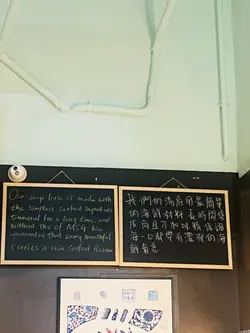 Our soup base is made with
the simplest seafood ingredients
simmered for a long time, and
without the of MSG. We
guarantee that every mouthful
Carries a rich seafood flavour
我們的湯底用最簡單
的海鮮材料長時間煲
成而且不加味精保證
每一口都帶有濃郁的海
鮮氣息